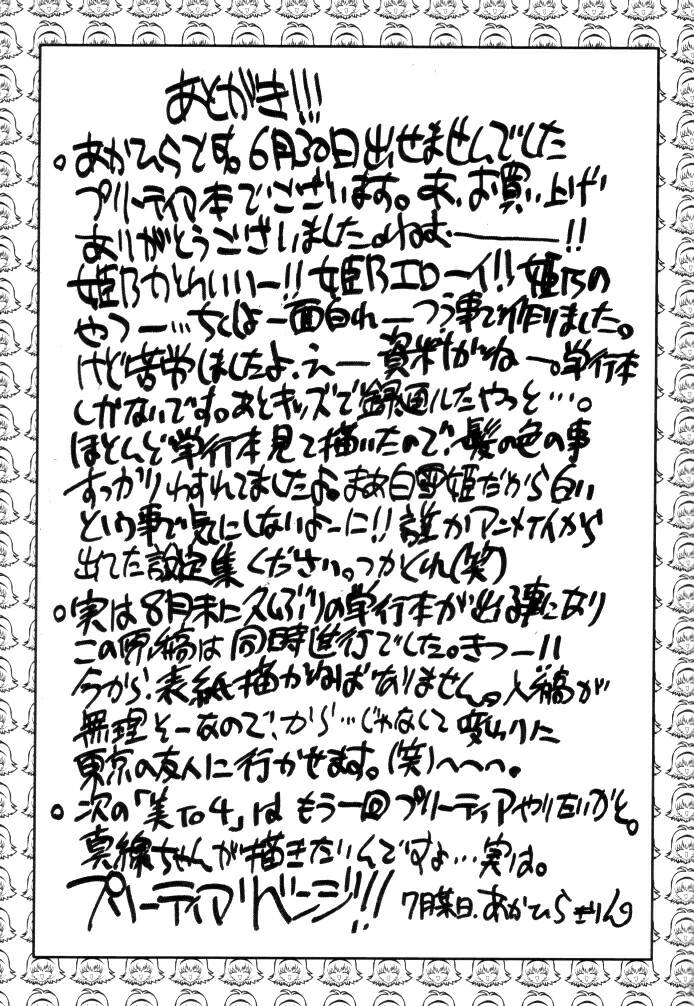 あとがき!!!
○あかひらです。6月30日出せませんでした
プリーティア本でございます。あ、お買い上げ
ありがとうございました。ねむ———!!
姫乃かわいいー!!姫乃エローイ!!姫乃の
やつー…ちくしょー面白れーつう事で作りました。
けど苦労しましたよ、えー資料がねー。単行本
しかないです。あとキッズで録画したやつと…。
ほとんど単行本見て描いたので、髪の色の事
すっかりわすれてましたよ。まあ白雪姫だから白い
という事で気にしないよーに!!誰かアニメイトから
出てた設定集ください。つかくれ(笑)
○実は8月末に久しぶりの単行本が出る事になり
この原稿は同時進行でした。きつー!!
今から、表紙描かねばなりません。入稿が
無理そーなので、から…じゃなくて変わりに
東京の友人に行かせます。(笑)へへへ。
○次の「美To4」はもう一回プリーティアやりたいかと。
真綿ちゃんが描きたいんですよ…実は。
プリーティアリベンジ!!
7月某日.あかひらきりん